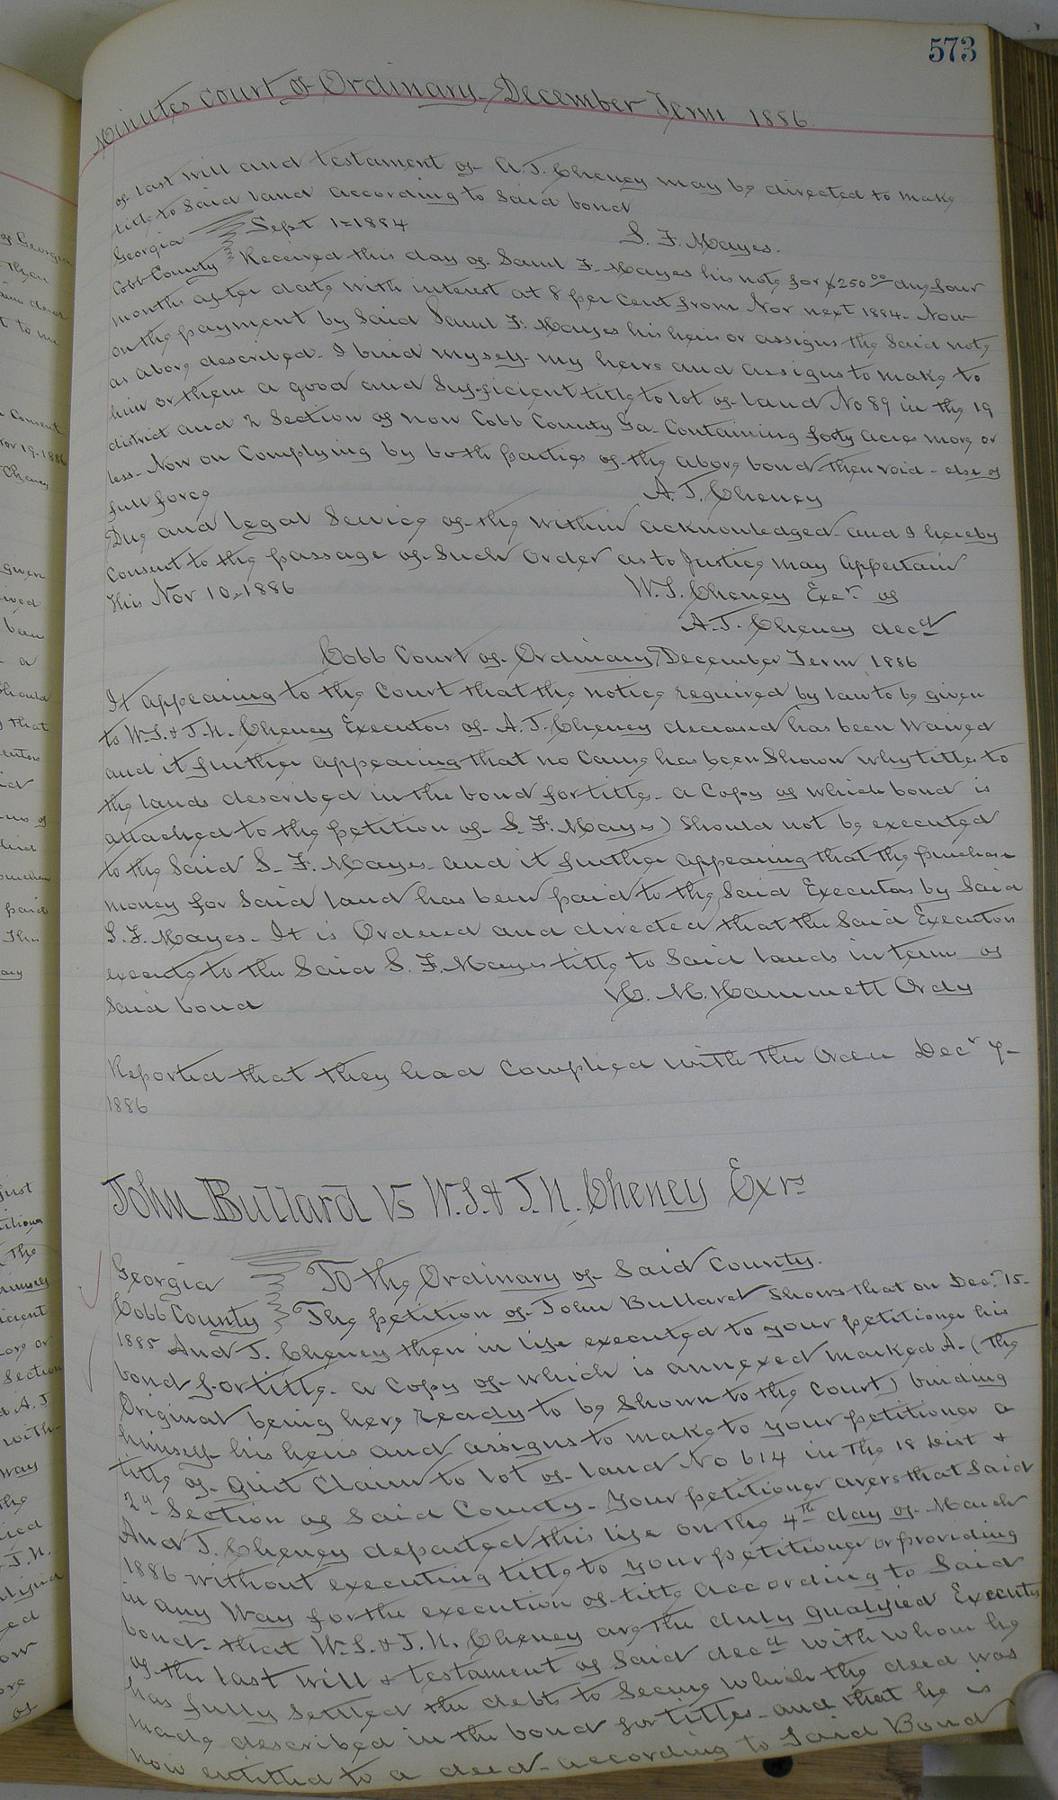 573
Minutes Court of Ordinary December Term 1886
of Last Will and Testament of A.J. Cheney may be directed to make
title to said land according to said bond
S. F. Mayes.
Georgia Sept 1=1884
Cobb County Received this day of Saml F. Mayes his note for $250.00 due four
months after date with interest at 8 per cent from Nov next 1884. Now
on the payment by said Saml F. Mayes his heirs or assigns the said note
as above described. I bind myself my heirs and assigns to make to
him or them a good and sufficient title to lot of land No 89 in the 19
district and 2 Section of now Cobb County Ga. Containing forty acres more or
less. Now on complying by both parties of the above bond then void - else of
full force
A. J. Cheney
Due and legal service of the within acknowledged and I hereby
consent to the passage of such order as to Justice may appertain
This Nov 10, 1886
W. S. Cheney Excr of
A. J. Cheney decd
Cobb Court of Ordinary December Term 1886
It appearing to the Court that the notice required by law to be given
to W. S. & J. N. Cheney Executors of A. J. Cheney deceased has been waived
and it further appearing that no cause has been shown why title to
the lands described in the bond for title - a copy of which bond is
attached to the petition of S. F. Mayes) should not be executed
to the said S. F. Mayes and it further appearing that the purchase
money for said land has been paid to the said Executors by said
S. F. Mayes. It is Ordered and directed that the said Executors
execute to the said S. F. Mayes title to said lands in terms of
said bond
H. M. Hammett Ordy
Reported that they had complied with the Order Decr 7-
1886
John Bullard Vs W. S. & J. N. Cheney Exrs
Georgia To the Ordinary of said County.
Cobb County The petition of John Bullard shows that on Decr 15-
1885 And J. Cheney then in life executed to your petitioner his
bond for title. a copy of which is annexed marked A. (The
Original being here ready to be shown to the Court) binding
himself his heirs and assigns to make to your petitioner a
title of quit claim to lot of land No 614 in the 18 Dist &
2d Section of said County. Your petitioner avers that said
And J. Cheney departed this life on the 4th day of March
1886 without executing title to your petitioner or providing
in any way for the execution of title according to said
bond. that W. S. & J. N. Cheney are the duly qualified Executors
of the last will & testament of said decd with whom he
has fully settled the debt to secure which the deed was
made described in the bond for titles and that he is
now entitled to a deed according to said Bond